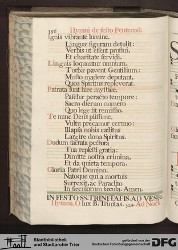 Hymni de festo Pentecost.
Ignis vibrante lumine,
Linguae figuram detulit:
Verbis ut essent proflui,
Et charitate fervidi.
Linguis loquuntur omnium,
Turbae pavent Gentilium:
Musto madere deputant,
Quos Spiritus repleverat.
Patrata sunt haec mystice,
Paschae peracto tempore:
Sacro dierum numero
Quo lege fit remissio.
Te nunc Deus piissime,
Vultu precamur cernuo:
Illapsa nobis caelitus
Largire dona Spiritus.
Dudum sacrata pectora
Tua replesti gratia:
Dimitte nostra crimina,
Et da quieta tempora.
Gloria Patri Domino,
Natoque qui a mortuis
Surrexit, ac Paraclito
In sempiterna saecula. Amen.
IN FESTO SS. TRINITAT. AD VES
Hymnus. O lux B. Trinitas.
Stadtbibliothek
und Stadtarchiv Trier
gefördert durch
DFG